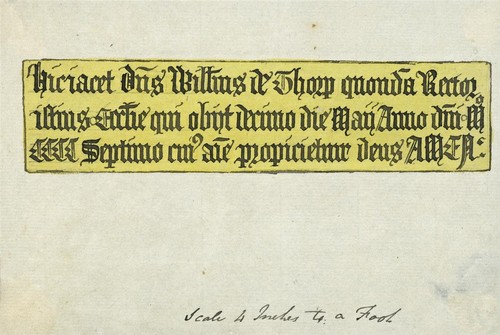 Hic iacet Dn̄s Willm̄us de Thorp quondā Rector
istius Eccl̄ie qui obijt decimo die Maij Anno dn̄i Mᵒ
CCCC Septimo cui⁹ aīe propicietur deus AMEN
Scale 4 Inches to a Foot